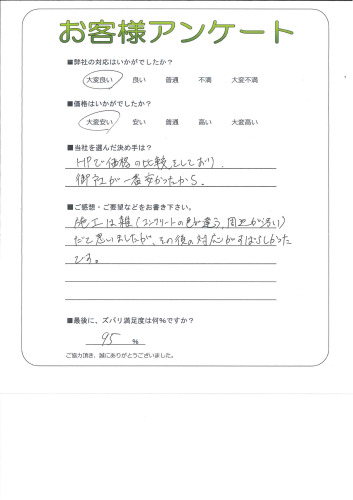 お客様アンケート
■弊社の対応はいかがでしたか？
大変良い 良い 普通 不満 大変不満
■価格はいかがでしたか？
大変安い 安い 普通 高い 大変高い
■当社を選んだ決め手は？
HPで価格の比較をしており、
御社が一番安かったから。
■ご感想・ご要望などをお書き下さい。
施工は雑(コンクリートの色が違う、周辺が汚い)
だと思いましたが、その後の対応がすばらしかった
です。
■最後に、ズバリ満足度は何%ですか？
95 %
ご協力頂き、誠にありがとうございました。